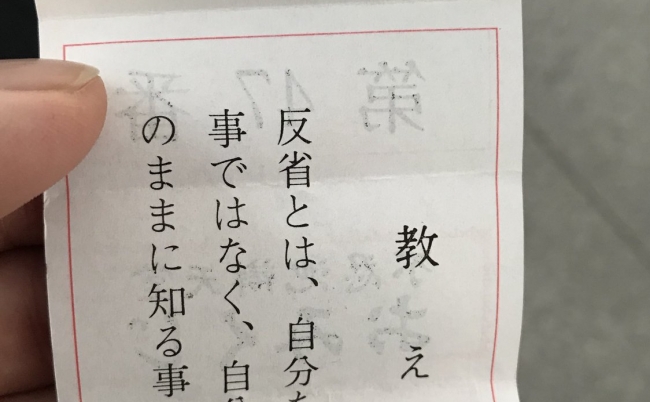 教え
反省とは、自分を
事ではなく、自分
のままに知る事
第47番